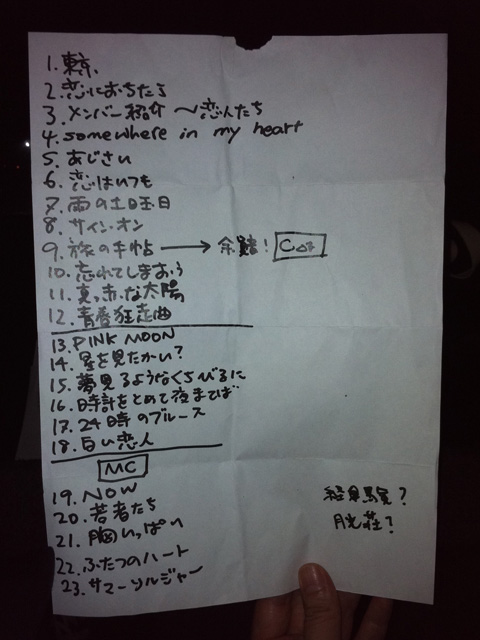 1. 東京
2. 恋におちたら
3. メンバー紹介 〜恋人たち
4. somewhere in my heart
5. あじさい
6. 恋はいつも
7. 雨の土曜日
8. サイン・オン
9. 旅の手帖 → 余韻! C△7
10. 忘れてしまおう
11. 真っ赤な太陽
12. 青春狂走曲
13. PINK MOON
14. 星を見たかい?
15. 夢見るようなくちびるに
16. 時計をとめて夜待てば
17. 24時のブルース
18. 白い恋人
MC
19. NOW
20. 若者たち
21. 胸いっぱい
22. ふたつのハート
23. サマーソルジャー
経験?
月光荘?